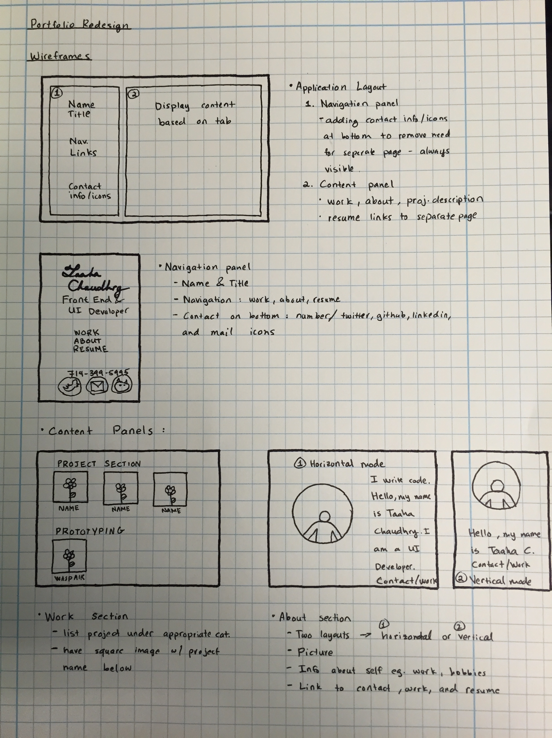 Portfolio Redesign
Wireframes
①
Name
Title
Nav.
Links
Contact
info/icons
②
Display content
based on tab
• Application Layout
1. Navigation panel
- adding contact info/icons
at bottom to remove need
for seperate page - always
visible.
2. Content panel
• work, about, proj. description
• resume links to separate page
Taaha
Chaudhry
Front End &
UI Developer
WORK
ABOUT
RESUME
• Navigation panel
- Name & Title
- Navigation: work, about, resume
- Contact on bottom: number/twitter, github, linkedin,
and mail icons
• Content Panels:
PROJECT SECTION
NAME
NAME
NAME
PROTOTYPING
① Horizontal mode
I write code.
Hello, my name
is Taaha
Chaudhry. I
am a UI
Developer.
Contact/Work
Hello, my name
is Taaha C.
Contact/Work
② Vertical mode
• Work Section
- list project under appropriate cat.
- have square image w/ project
name below
• About section
- Two layouts → ① horizontal or ② vertical
- Picture
- Info about self eg. work, hobbies
- Link to contact, work, and resume